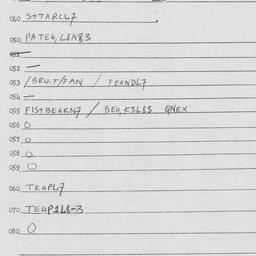 040 S+TARCL7
050 PATE4, L8N83
051 —
052 —
053 /BRU.T/FAN / FE4NDL7
054 —
055 FIS+BE4KN7 / BE4, K3L83 QNEX
056 O
057 O
058 O
059 O
060 TE4PL7
070 TE4P1L8-3
080 O